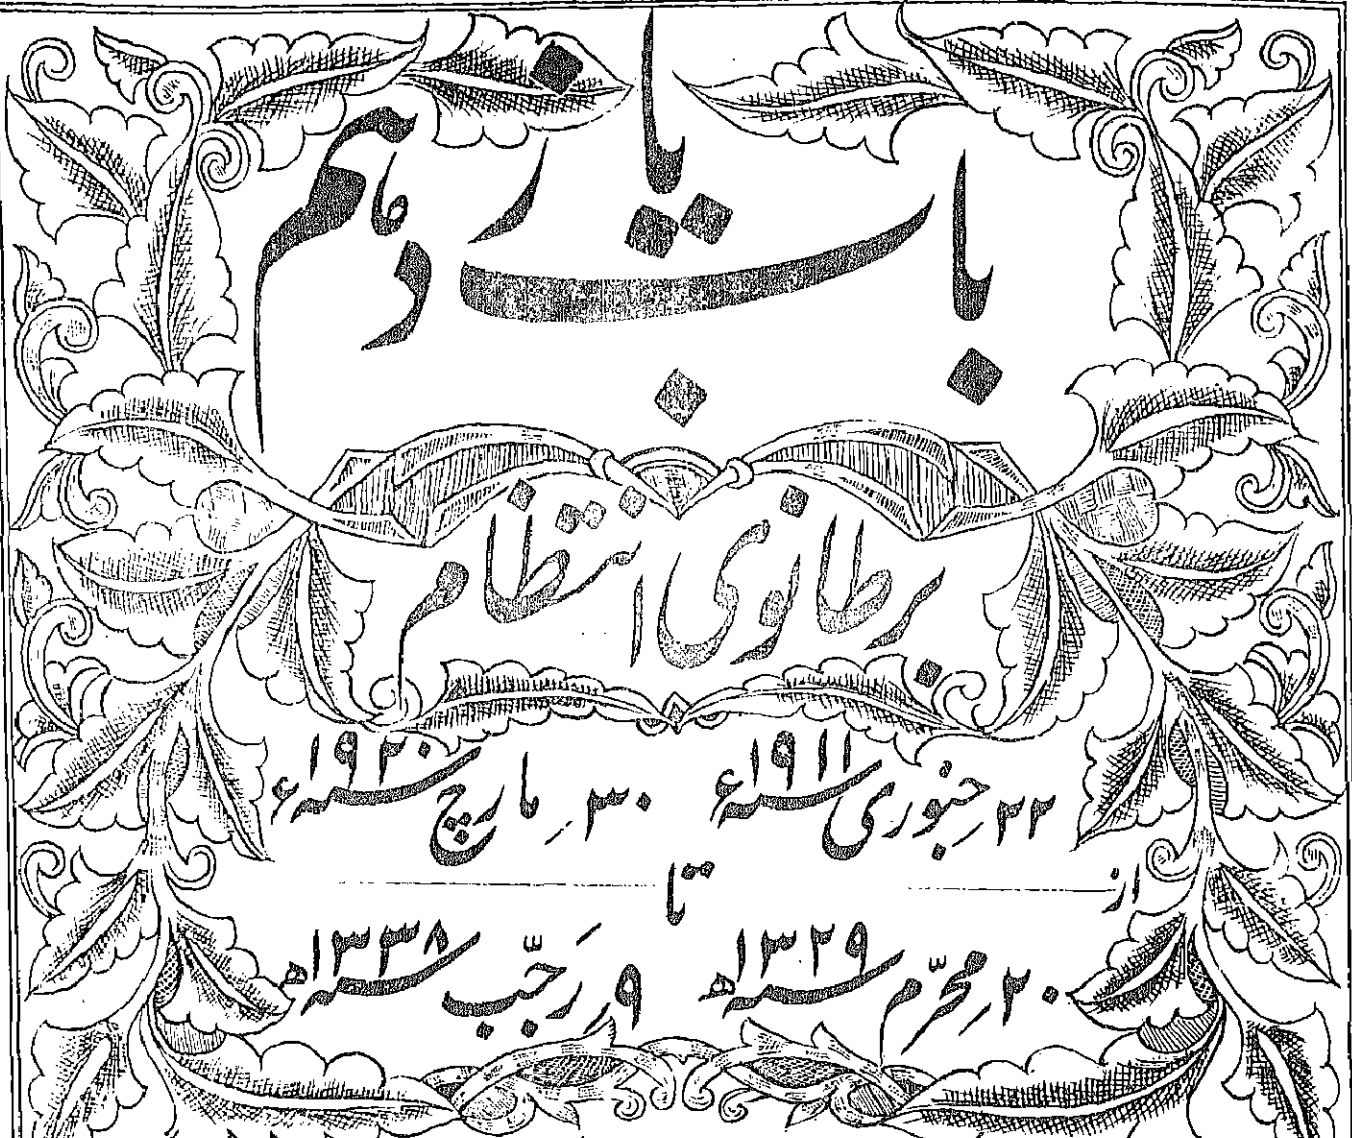 باب یازدہم
برطانوی انتظام
۲۲؍ جنوری سنہ ۱۹۱۱ء ۳۰؍ مارچ سنہ ۱۹۲۰ء
از تا
۲۰؍ محرّم سنہ ۱۳۲۹ھ ۹؍ رجّب سنہ ۱۳۳۸ھ